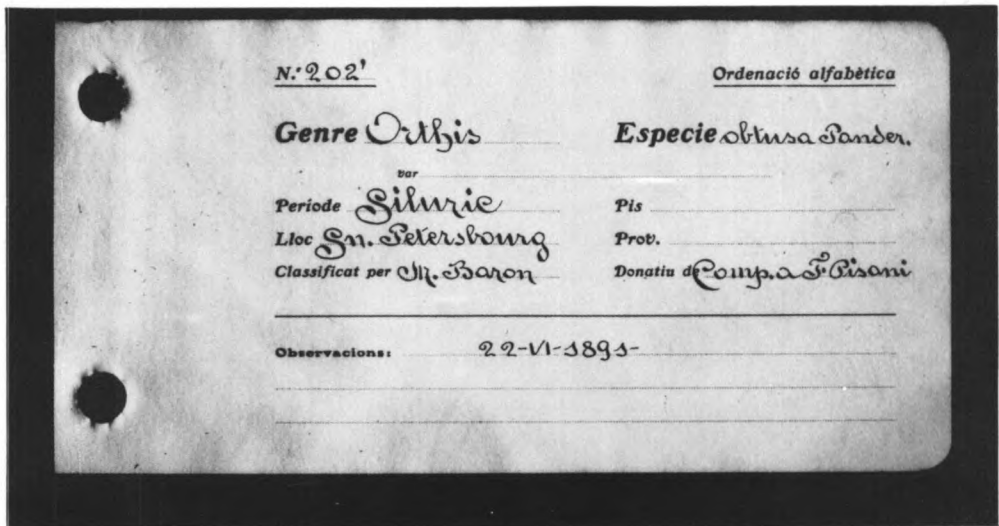 N.º 202' Ordenació alfabètica
Genre Orthis Especie obtusa Pander.
var
Període Siluric Pis
Lloc Sn. Petersbourg Prov.
Classificat per M. Baron Donatiu de Comp. a F. Pisani
Observacions: 22-VI-1891-